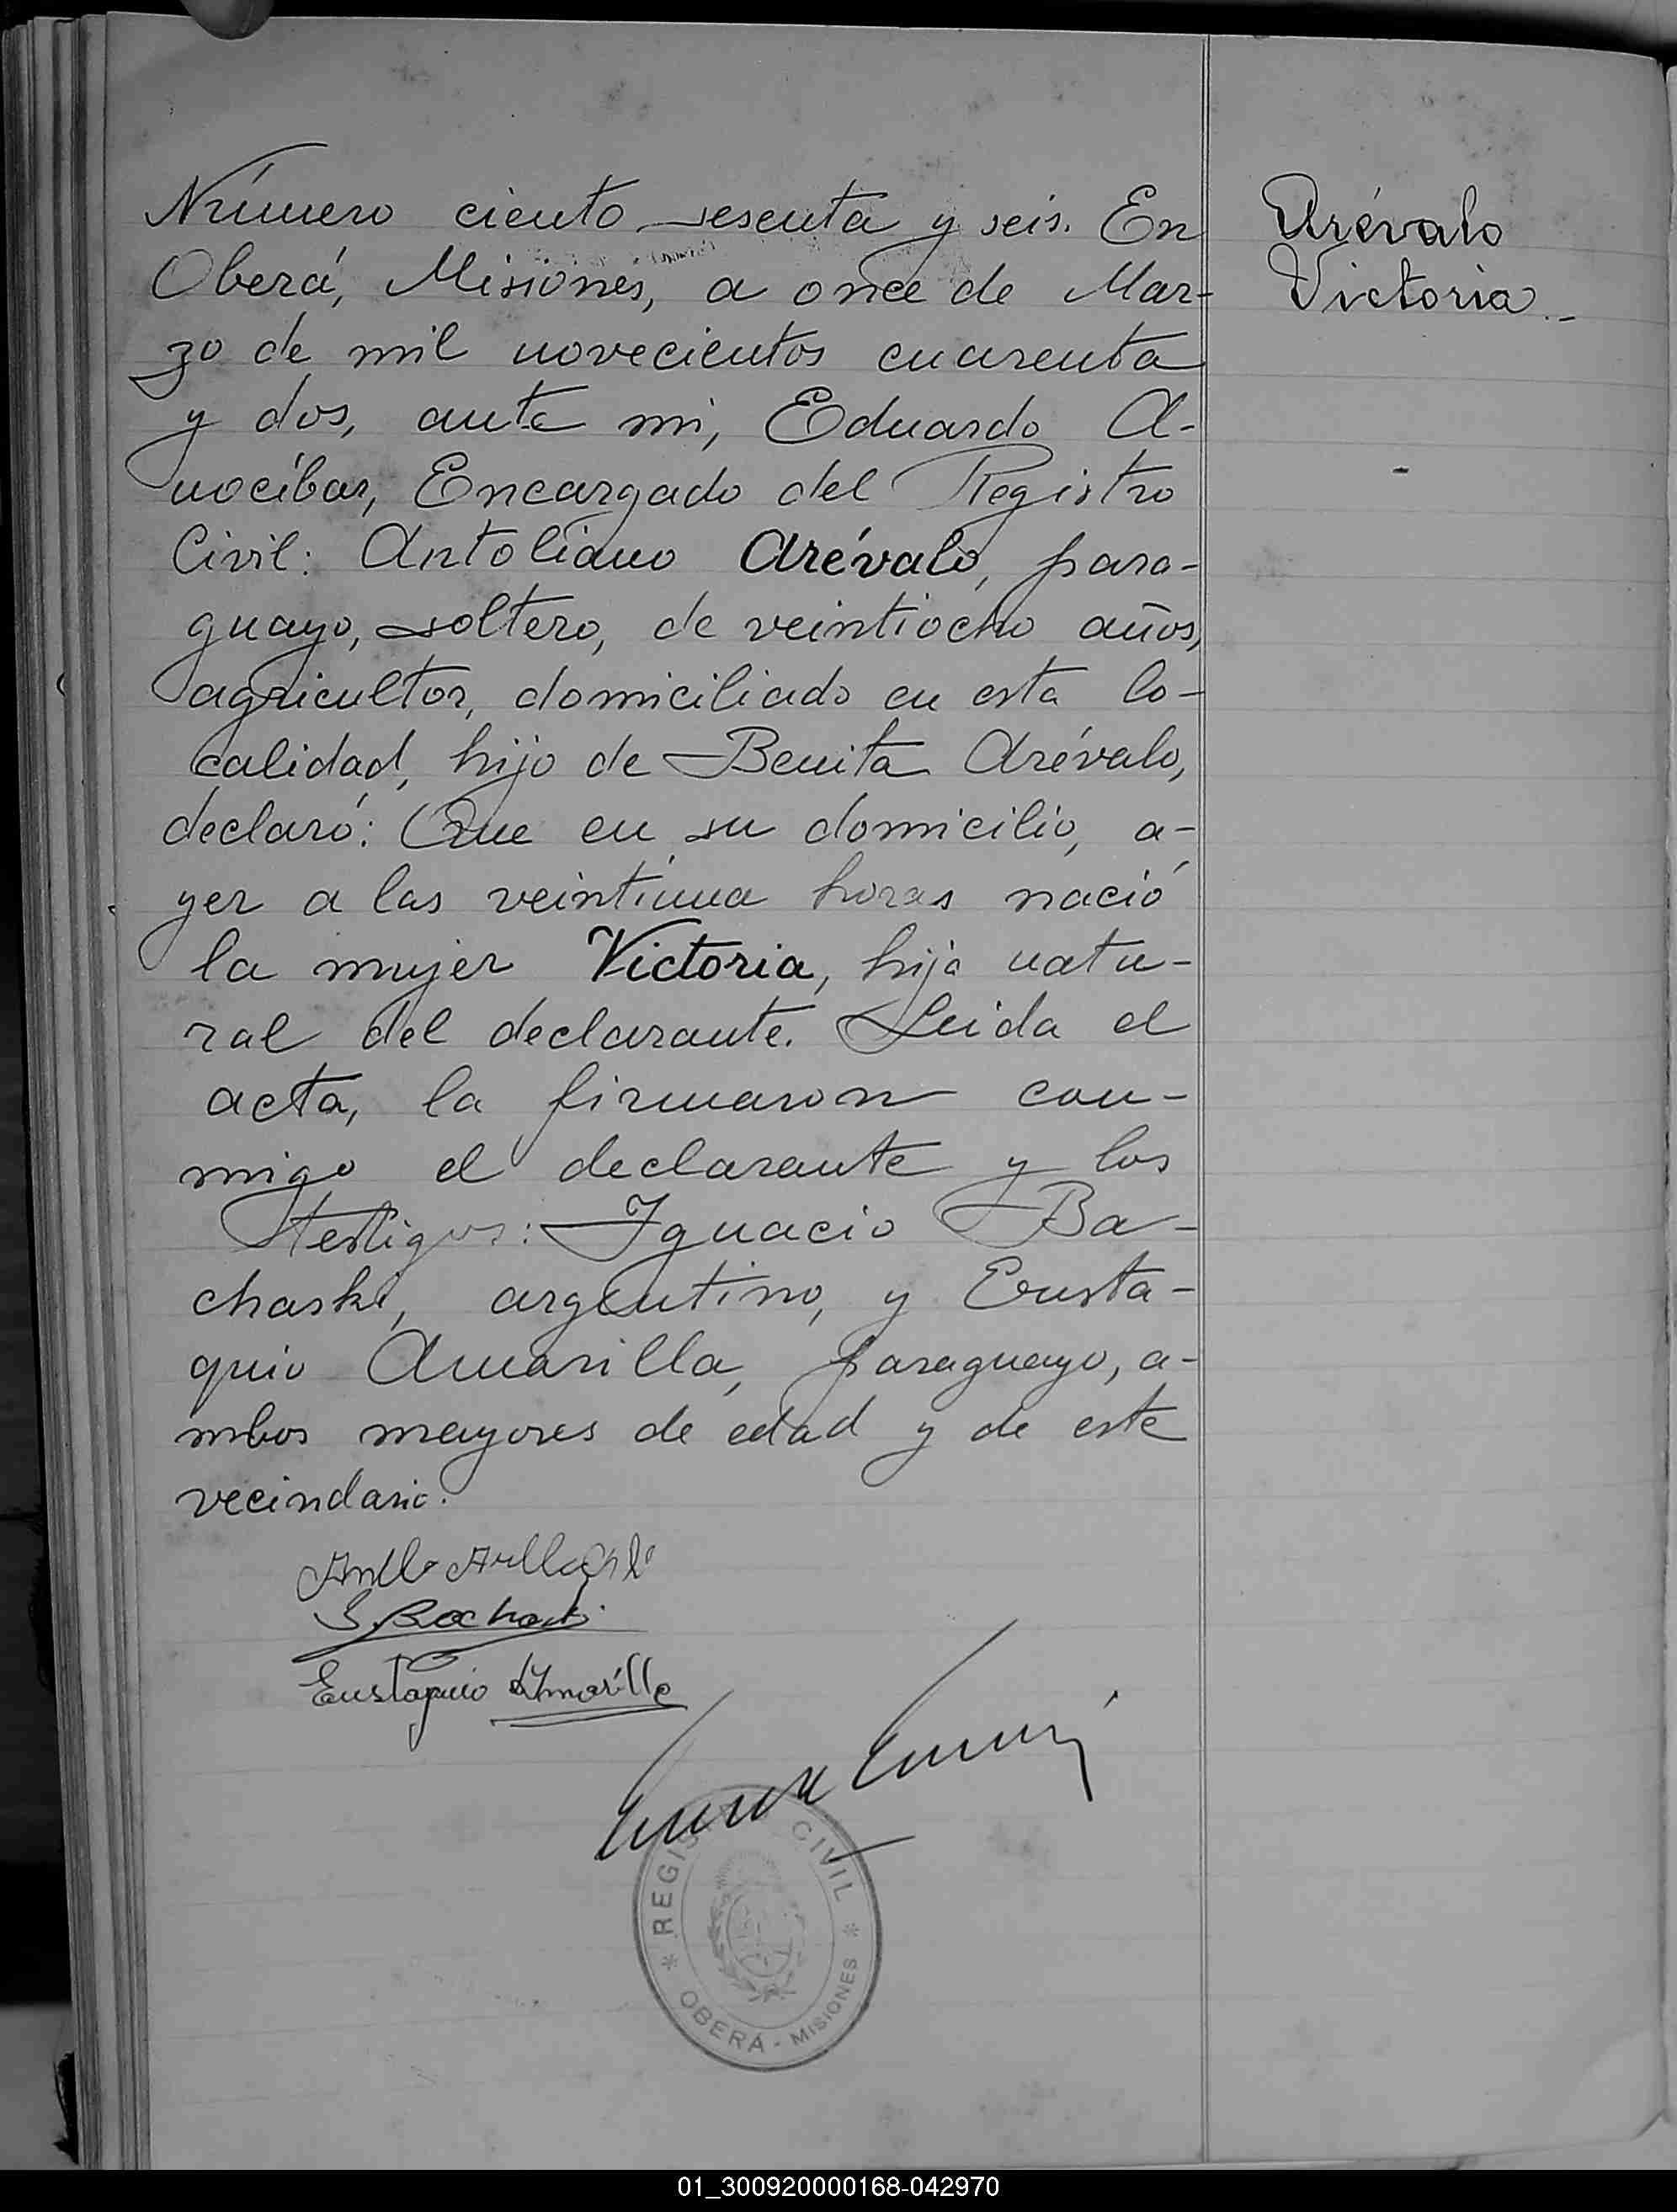 Número ciento sesenta y seis. En
Oberá, Misiones, a once de Mar-
zo de mil novecientos cuarenta
y dos, ante mi, Eduardo A-
nocíbar, Encargado del Registro
Civil: Antoliano Arévalo, para-
guayo, soltero, de veintiocho años,
agricultor, domiciliado en esta lo-
calidad, hijo de Benita Arévalo,
declaró: Que en su domicilio, a-
yer a las veintiuna horas nació
la mujer Victoria, hija natu-
ral del declarante. Leida el
acta, la firmaron con-
migo el declarante y los
testigos: Ignacio Ba-
chaski, argentino, y Eusta-
quio Amarilla, paraguayo, a-
mbos mayores de edad y de este
vecindario.
Eustaquio Amarilla
Arévalo
Victoria.-
REGISTRO CIVIL
OBERÁ - MISIONES
01_300920000168-042970